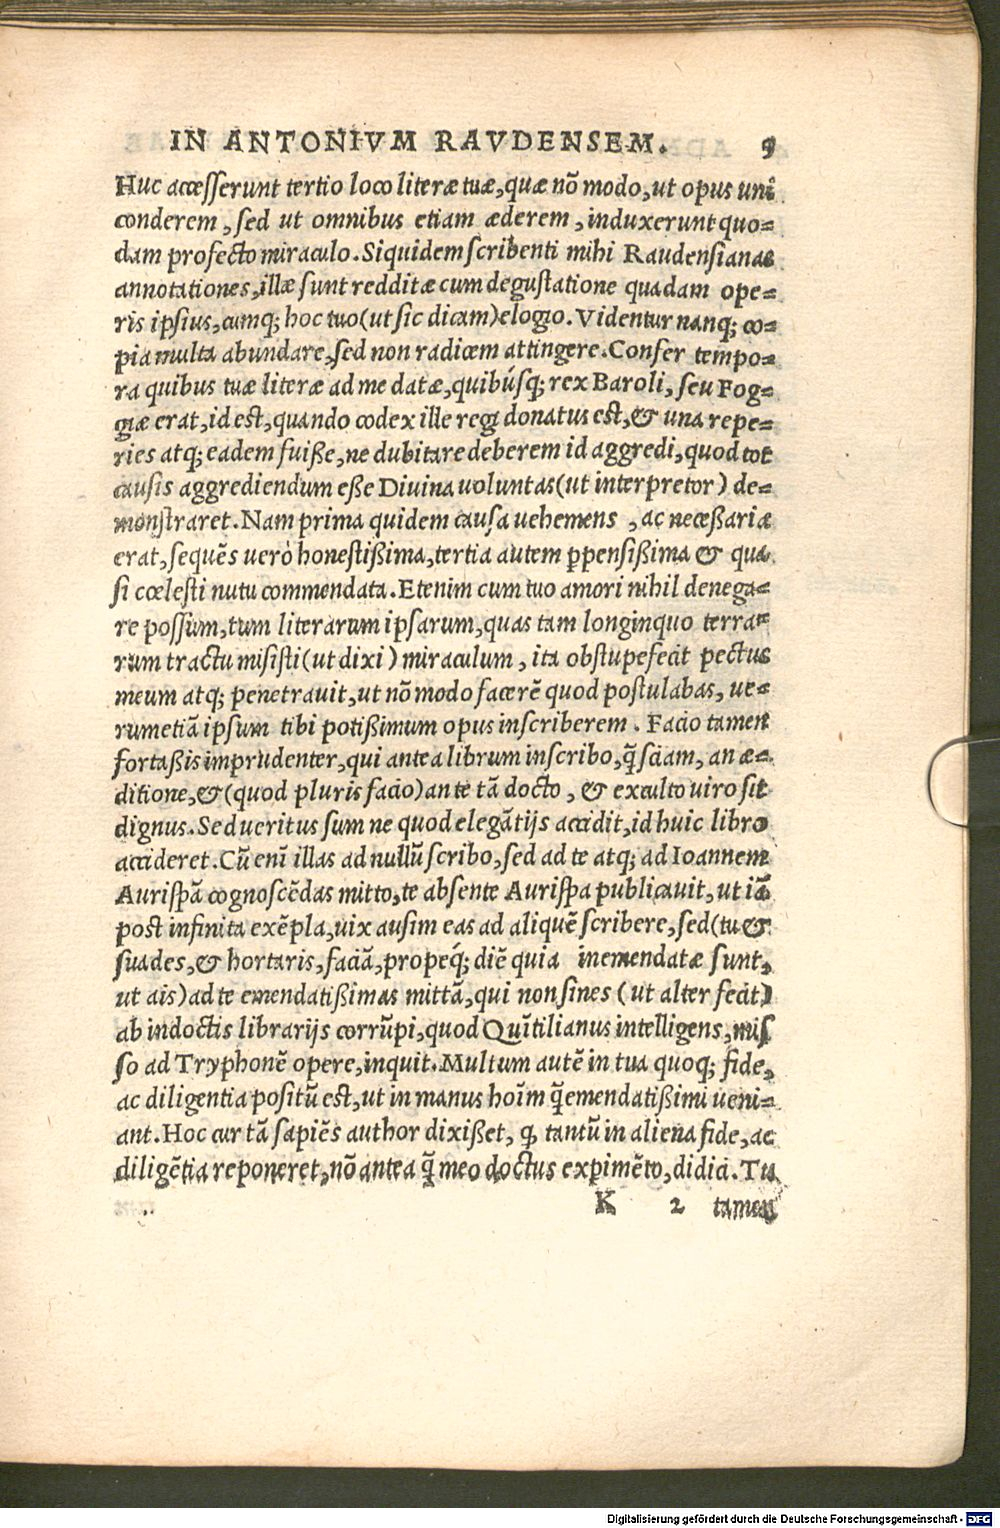 IN ANTONIVM RAVDENSEM. 9
Huc accesserunt tertio loco literæ tuæ, quæ nõ modo, ut opus unũ
conderem, sed ut omnibus etiam æderem, induxerunt quo=
dam profecto miraculo. Siquidem scribenti mihi Raudensianas
annotationes, illæ sunt redditæ cum degustatione quadam ope=
ris ipsius, cumq; hoc tuo (ut sic dicam) elogio. Videntur nanq; co=
pia multa abundare, sed non radicem attingere. Confer tempo=
ra quibus tuæ literæ ad me datæ, quibúsq; rex Baroli, seu Fog=
giæ erat, id est, quando codex ille regi donatus est, & una repe=
ries atq; eadem fuiße, ne dubitare deberem id aggredi, quod tot
causis aggrediendum eße Divina uoluntas (ut interpretor) de=
monstraret. Nam prima quidem causa uehemens, ac neceßariæ
erat, sequẽs uerò honestißima, tertia autem ꝓpensißima & qua
si cœlesti nutu commendata. Etenim cum tuo amori nihil denega=
re possum, tum literarum ipsarum, quas tam longinquo terra=
rum tractu misisti (ut dixi) miraculum, ita obstupefecit pectus
meum atq; penetrauit, ut nõ modo facerẽ quod postulabas, ue=
rumetiã ipsum tibi potißimum opus inscriberem. Facio tamen
fortaßis imprudenter, qui ante a librum inscribo, q̃ sciam, an æ=
ditione, & (quod pluris facio) an te tã docto, & exculto uiro sit
dignus. Sed ueritus sum ne quod elegãtijs accidit, id huic libro
accideret. Cũ enĩ illas ad nullũ scribo, sed ad te atq; ad Ioannem
Aurispã cognoscẽdas mitto, te absente Aurispa publicauit, ut iã
post infinita exẽpla, uix ausim eas ad aliquẽ scribere, sed (tu &
suades, & hortaris, faciã, propeq́; diẽ quia inemendatæ sunt,
ut ais) ad te emendatißimas mittã, qui non sines (ut alter fecit)
ab indoctis librarijs corrũpi, quod Quĩtilianus intelligens, mis
so ad Tryphonẽ opere, inquit. Multum autẽ in tua quoq; fide,
ac diligentia positũ est, ut in manus hoĩm q̃emendatißimi ueni=
ant. Hoc cur tã sapiẽs author dixißet, ꝙ tantũ in aliena fide, ac
diligẽtia reponeret, nõ antea q̃ meo doctus exꝑimẽto, didici. Tu
K 2 tamen
Digitalisierung gefördert durch die Deutsche Forschungsgemeinschaft - DFG